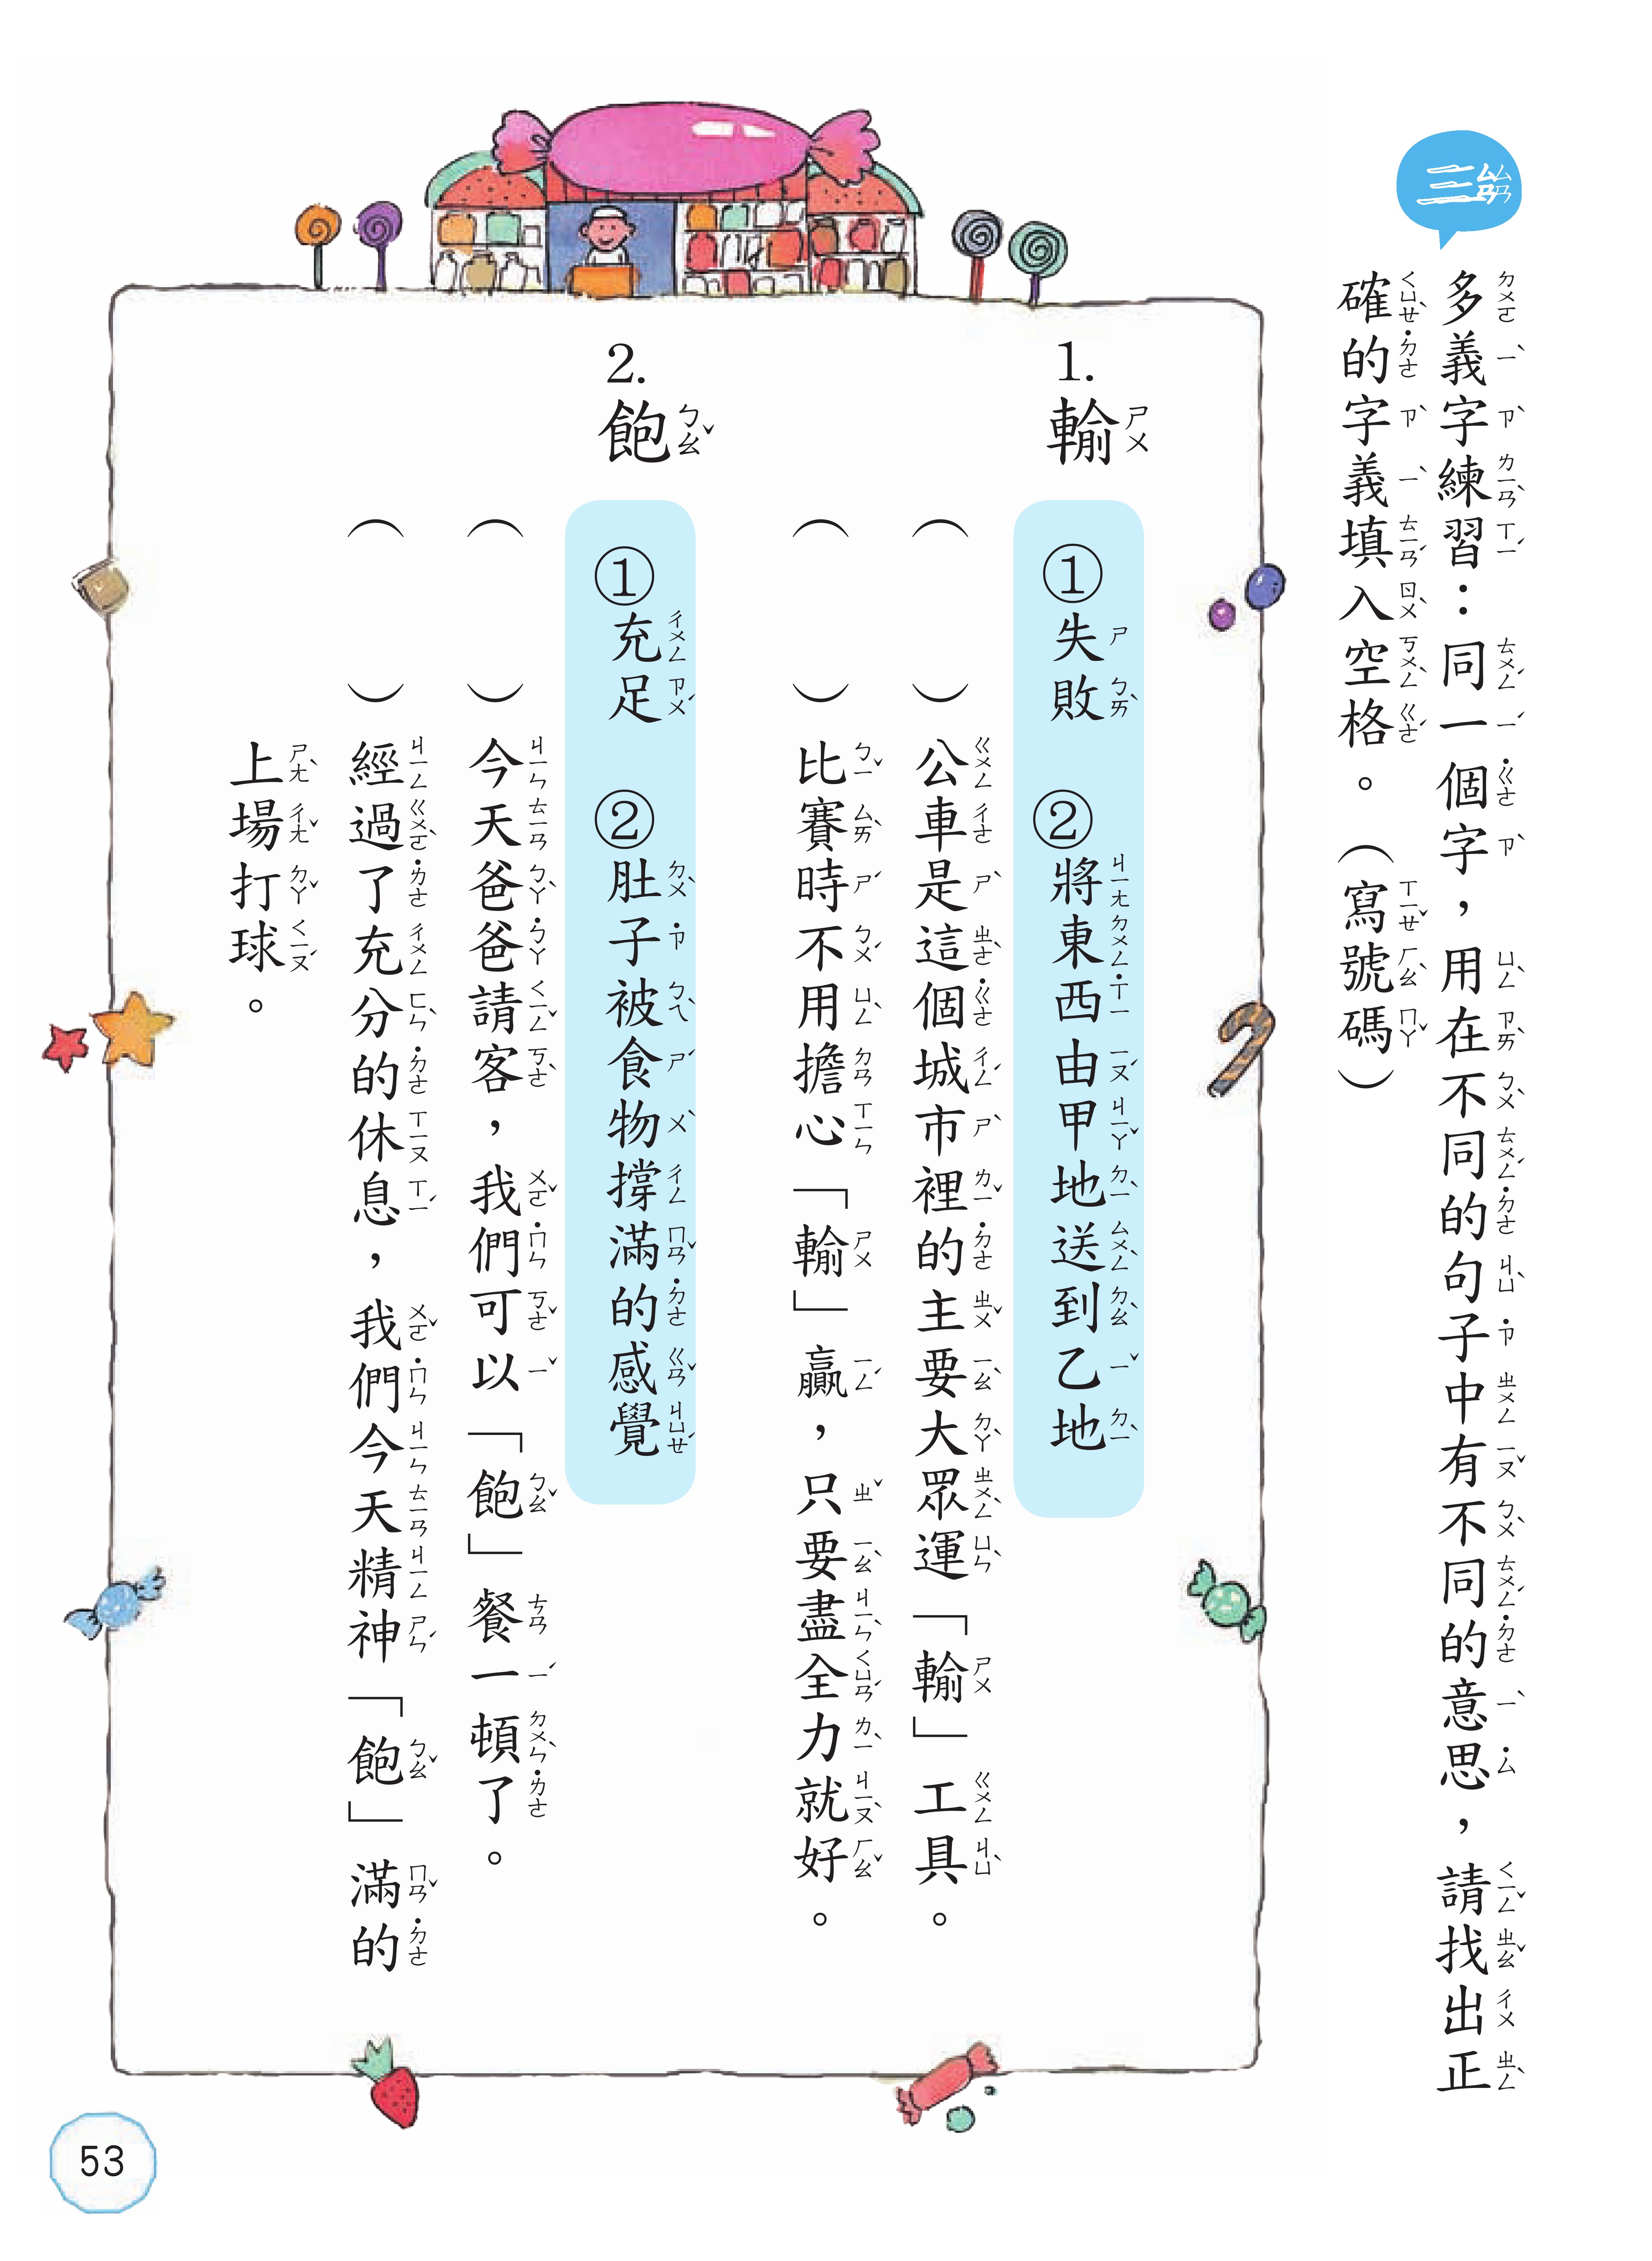 三
多義字練習：同一個字，用在不同的句子中有不同的意思，請找出正
確的字義填入空格。（寫號碼）
1. 輸
①失敗 ②將東西由甲地送到乙地
（ ）公車是這個城市裡的主要大眾運「輸」工具。
（ ）比賽時不用擔心「輸」贏，只要盡全力就好。
2. 飽
①充足 ②肚子被食物撐滿的感覺
（ ）今天爸爸請客，我們可以「飽」餐一頓了。
（ ）經過了充分的休息，我們今天精神「飽」滿的
上場打球。
53